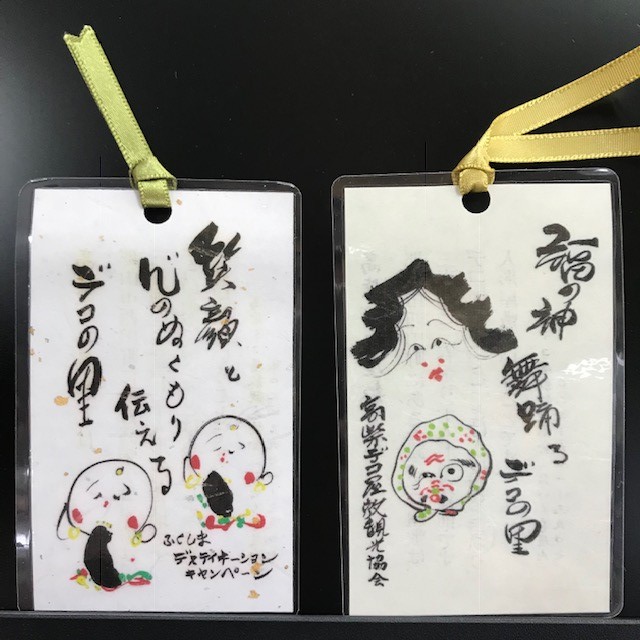 笑顔と
心のぬくもり
伝える
デコの里
ふくしま
デスティネーション
キャンペーン
福の神
舞踊る
デコの里
高柴デコ屋敷観光協会